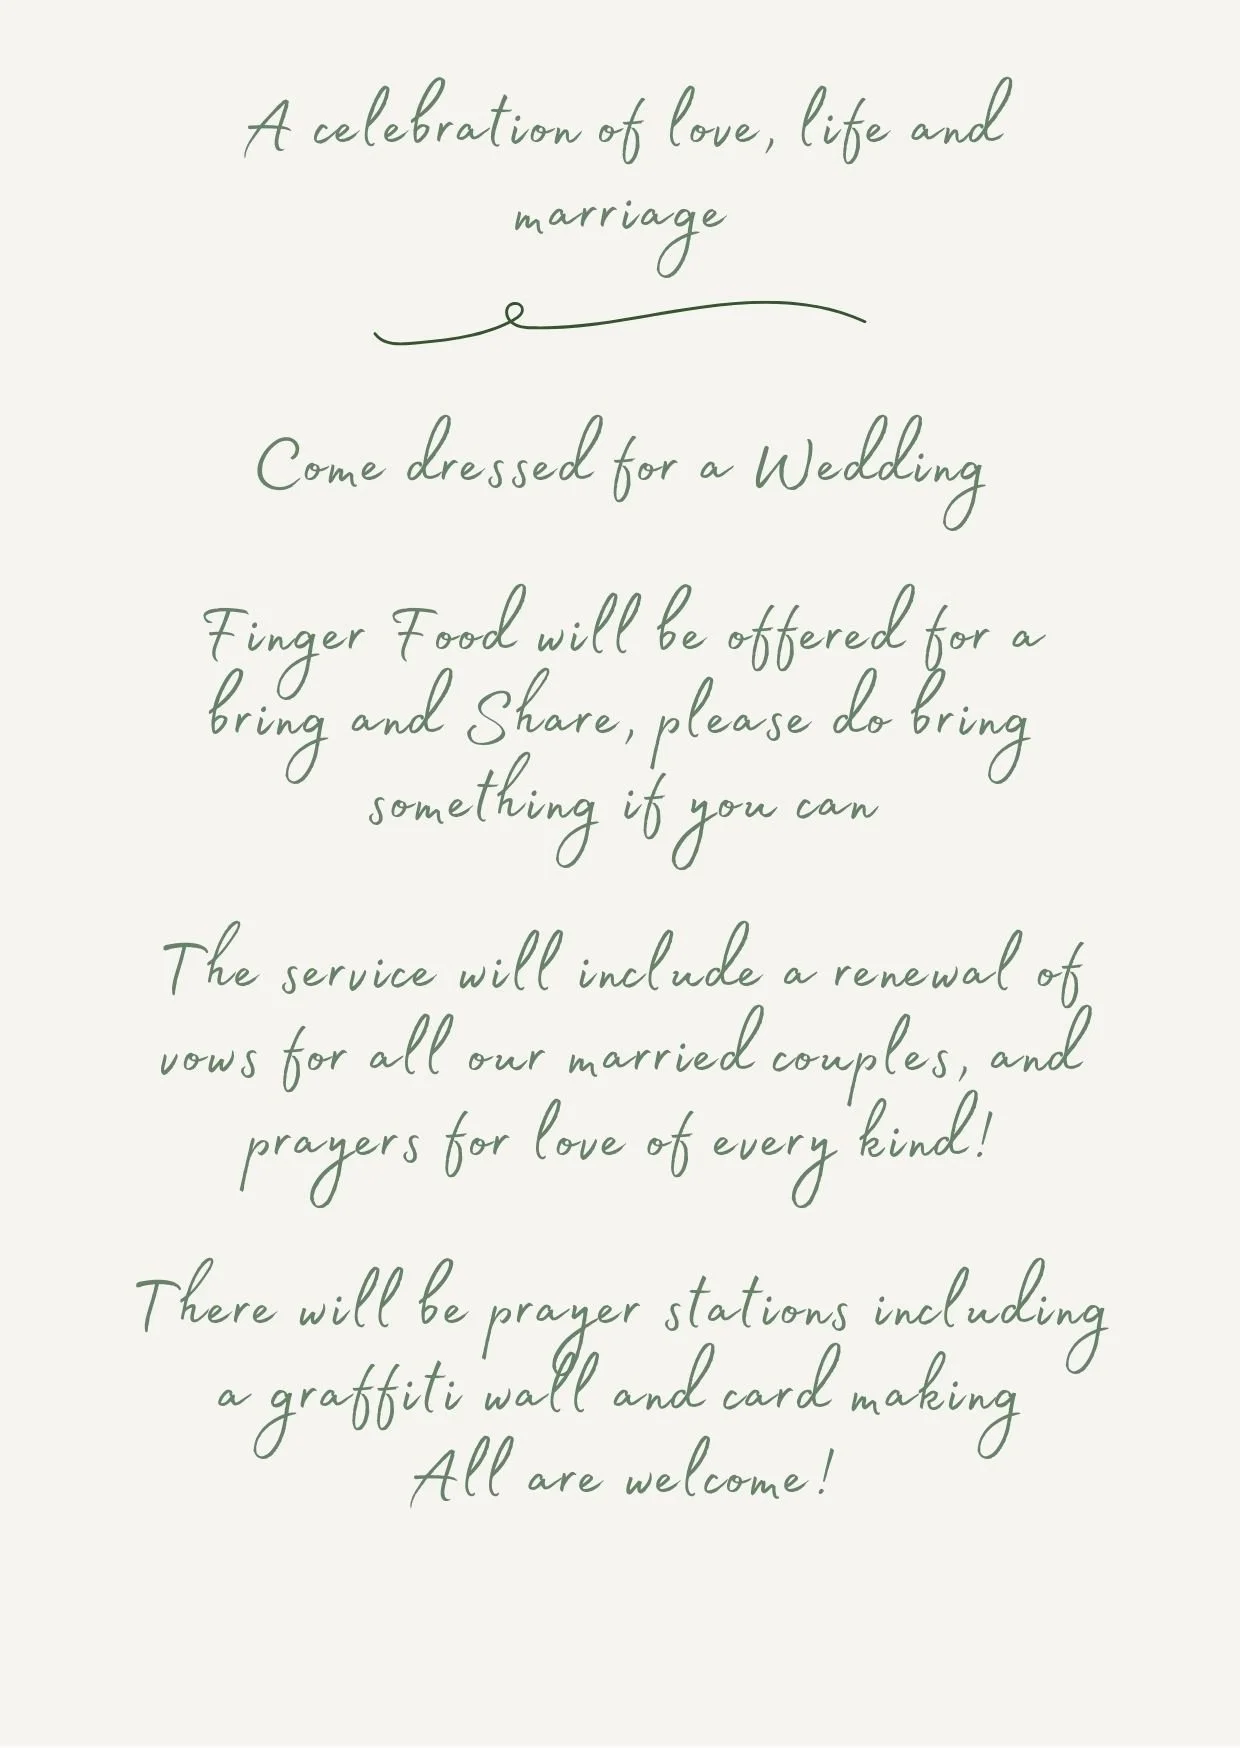 A celebration of love, life and
marriage
Come dressed for a Wedding
Finger Food will be offered for a
bring and Share, please do bring
something if you can
The service will include a renewal of
vows for all our married couples, and
prayers for love of every kind!
There will be prayer stations including
a graffiti wall and card making
All are welcome!